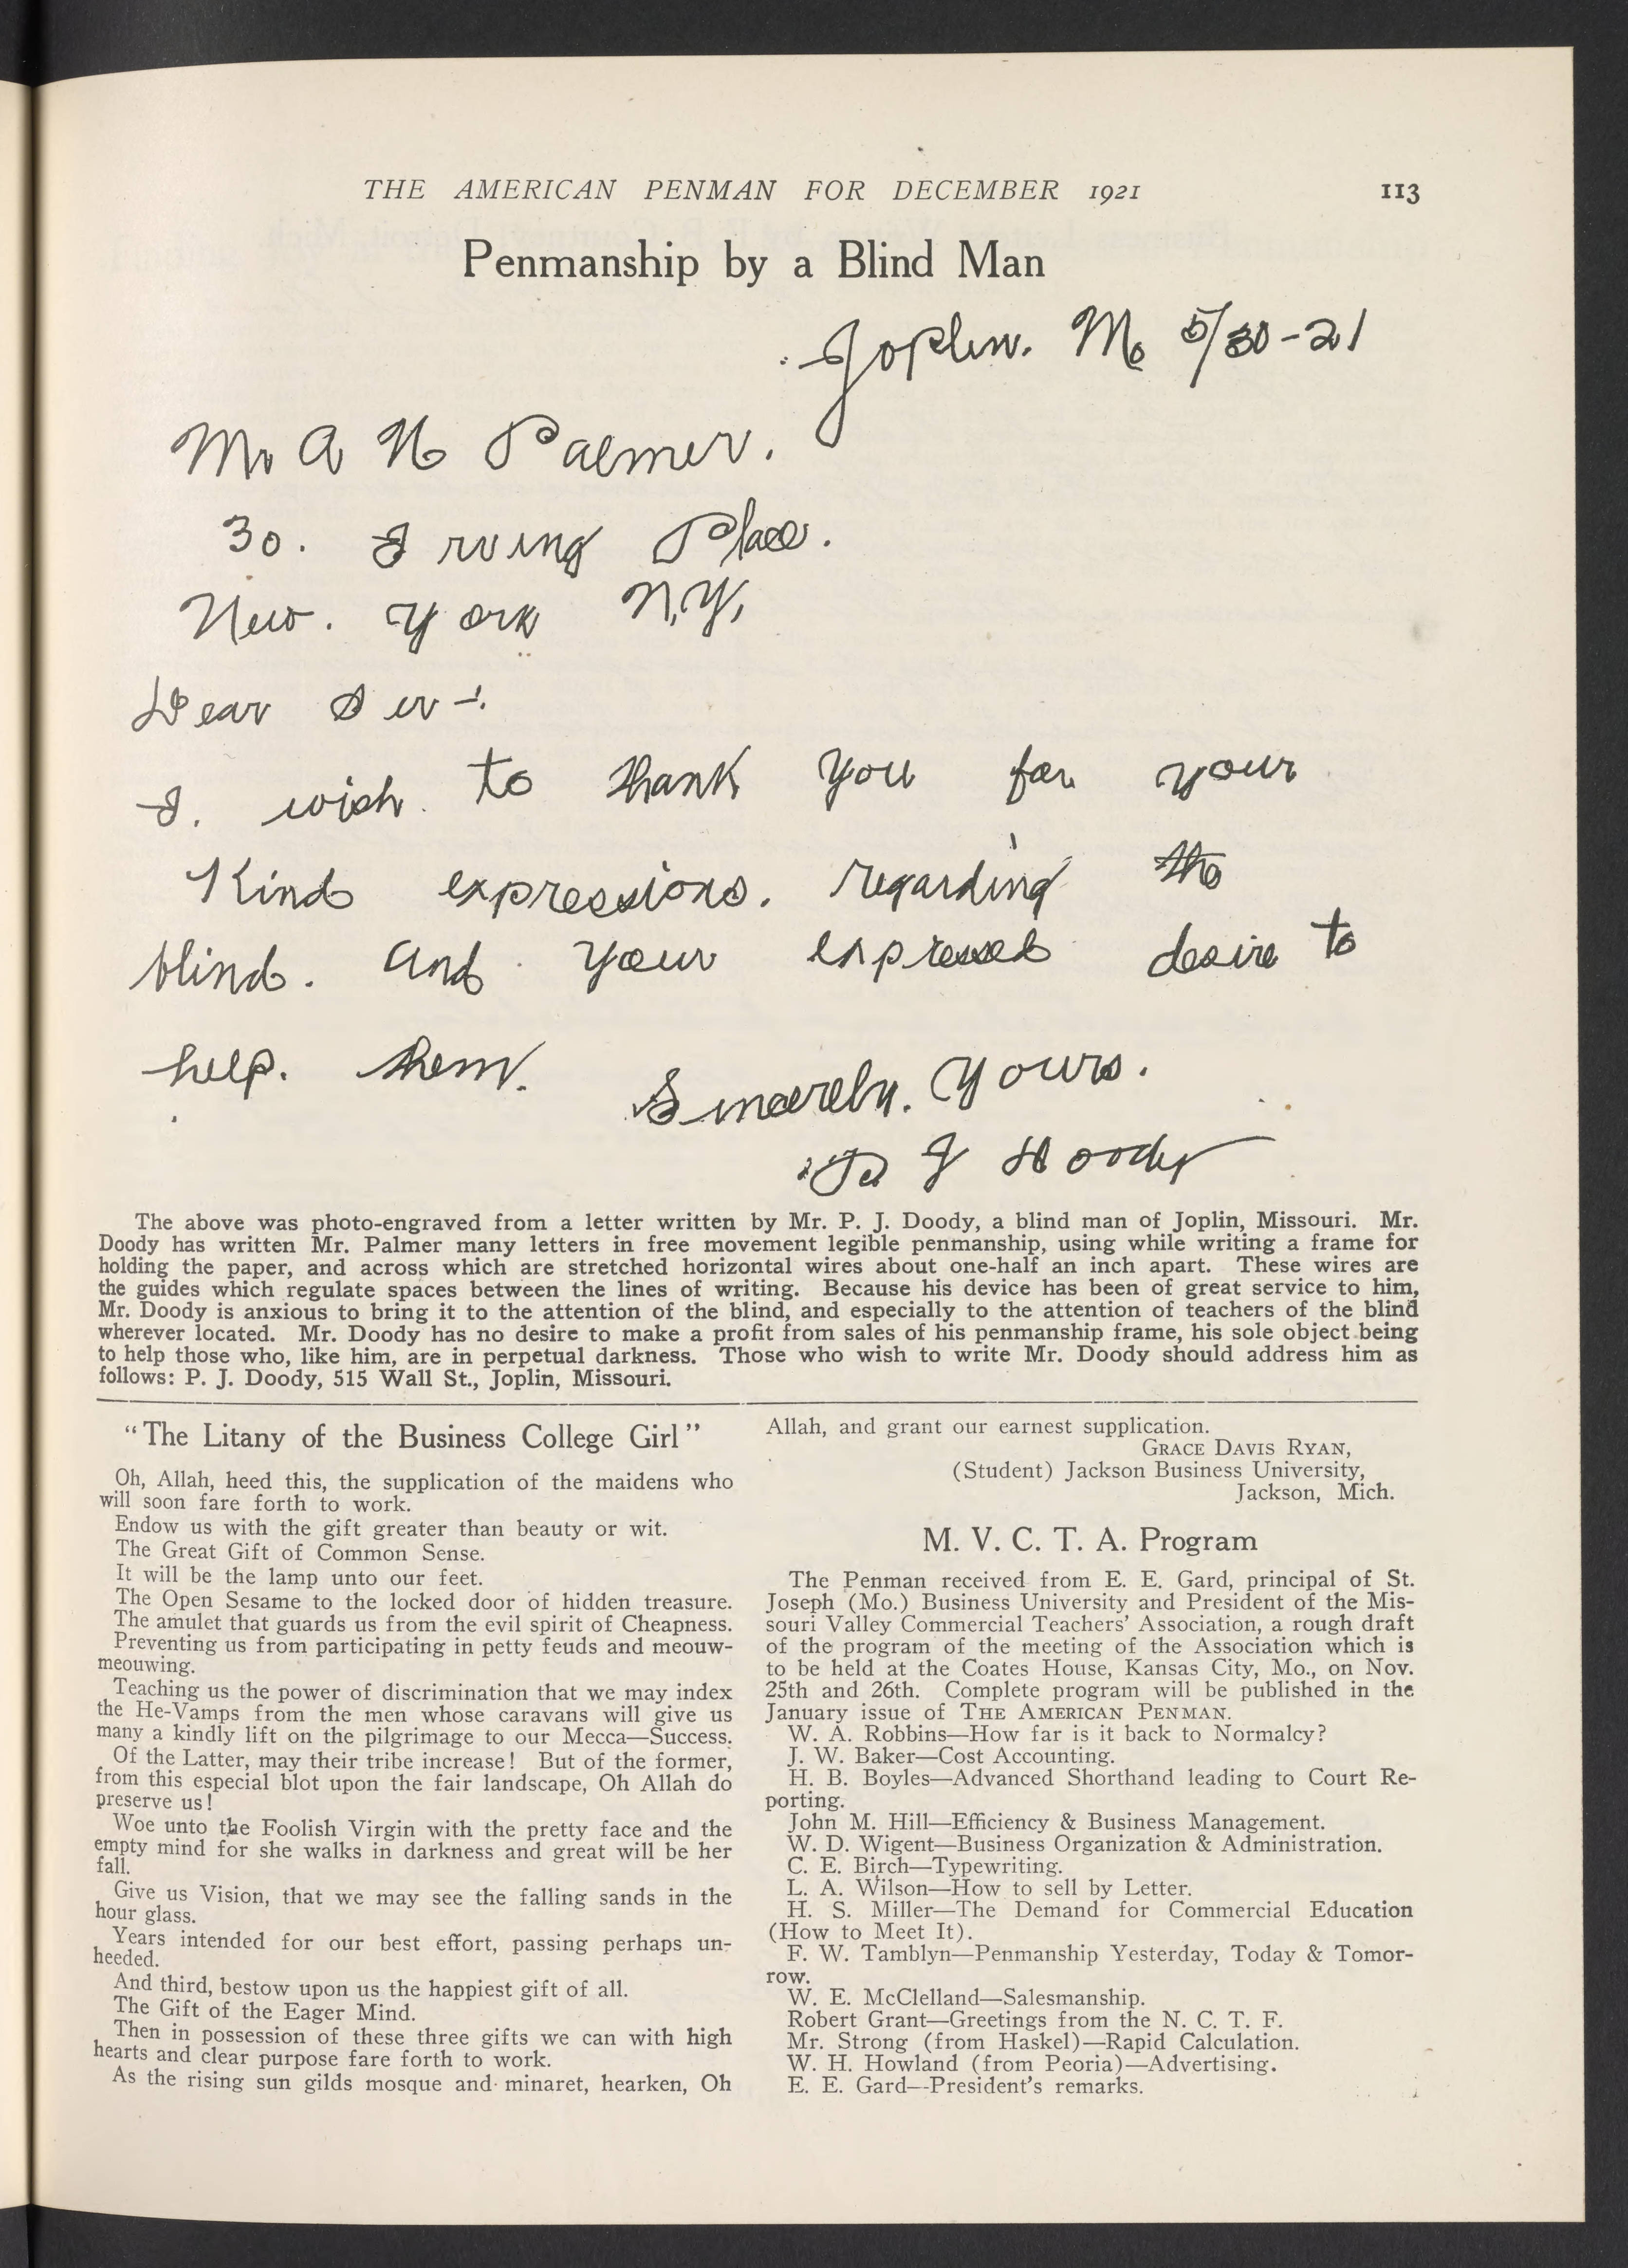 THE AMERICAN PENMAN FOR DECEMBER 1921 113
Penmanship by a Blind Man
Joplin. Mo 5/30-21
Mr A N Palmer.
30. Irving Place.
New. York N.Y,
Dear Sir-:
I. wish. to thank you for your
Kind expressions. regarding the
blind. and your expressed desire to
help. them.
Sincerely. yours.
P J Doody
The above was photo-engraved from a letter written by Mr. P. J. Doody, a blind man of Joplin, Missouri. Mr.
Doody has written Mr. Palmer many letters in free movement legible penmanship, using while writing a frame for
holding the paper, and across which are stretched horizontal wires about one-half an inch apart. These wires are
the guides which regulate spaces between the lines of writing. Because his device has been of great service to him,
Mr. Doody is anxious to bring it to the attention of the blind, and especially to the attention of teachers of the blind
wherever located. Mr. Doody has no desire to make a profit from sales of his penmanship frame, his sole object being
to help those who, like him, are in perpetual darkness. Those who wish to write Mr. Doody should address him as
follows: P. J. Doody, 515 Wall St., Joplin, Missouri.
"The Litany of the Business College Girl"
Oh, Allah, heed this, the supplication of the maidens who
will soon fare forth to work.
Endow us with the gift greater than beauty or wit.
The Great Gift of Common Sense.
It will be the lamp unto our feet.
The Open Sesame to the locked door of hidden treasure.
The amulet that guards us from the evil spirit of Cheapness.
Preventing us from participating in petty feuds and meouw-
meouwing.
Teaching us the power of discrimination that we may index
the He-Vamps from the men whose caravans will give us
many a kindly lift on the pilgrimage to our Mecca—Success.
Of the Latter, may their tribe increase! But of the former,
from this especial blot upon the fair landscape, Oh Allah do
preserve us!
Woe unto the Foolish Virgin with the pretty face and the
empty mind for she walks in darkness and great will be her
fall.
Give us Vision, that we may see the falling sands in the
hour glass.
Years intended for our best effort, passing perhaps un-
heeded.
And third, bestow upon us the happiest gift of all.
The Gift of the Eager Mind.
Then in possession of these three gifts we can with high
hearts and clear purpose fare forth to work.
As the rising sun gilds mosque and minaret, hearken, Oh
Allah, and grant our earnest supplication.
GRACE DAVIS RYAN,
(Student) Jackson Business University,
Jackson, Mich.
M. V. C. T. A. Program
The Penman received from E. E. Gard, principal of St.
Joseph (Mo.) Business University and President of the Mis-
souri Valley Commercial Teachers' Association, a rough draft
of the program of the meeting of the Association which is
to be held at the Coates House, Kansas City, Mo., on Nov.
25th and 26th. Complete program will be published in the
January issue of THE AMERICAN PENMAN.
W. A. Robbins—How far is it back to Normalcy?
J. W. Baker—Cost Accounting.
H. B. Boyles—Advanced Shorthand leading to Court Re-
porting.
John M. Hill—Efficiency & Business Management.
W. D. Wigent—Business Organization & Administration.
C. E. Birch—Typewriting.
L. A. Wilson—How to sell by Letter.
H. S. Miller—The Demand for Commercial Education
(How to Meet It).
F. W. Tamblyn—Penmanship Yesterday, Today & Tomor-
row.
W. E. McClelland—Salesmanship.
Robert Grant—Greetings from the N. C. T. F.
Mr. Strong (from Haskel)—Rapid Calculation.
W. H. Howland (from Peoria)—Advertising.
E. E. Gard—President's remarks.